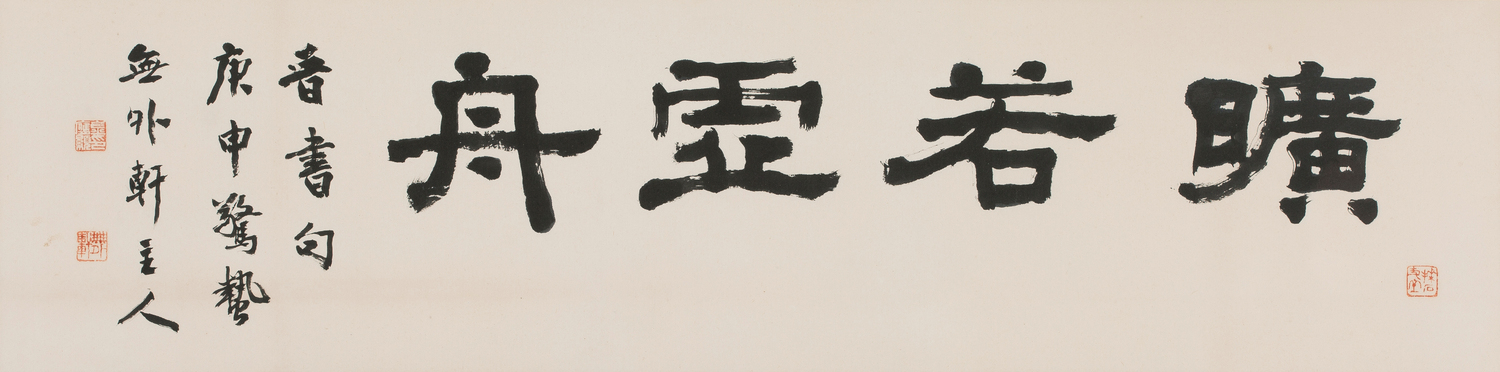 曠若虛舟
晉書句
庚申驚蟄
無外軒主人